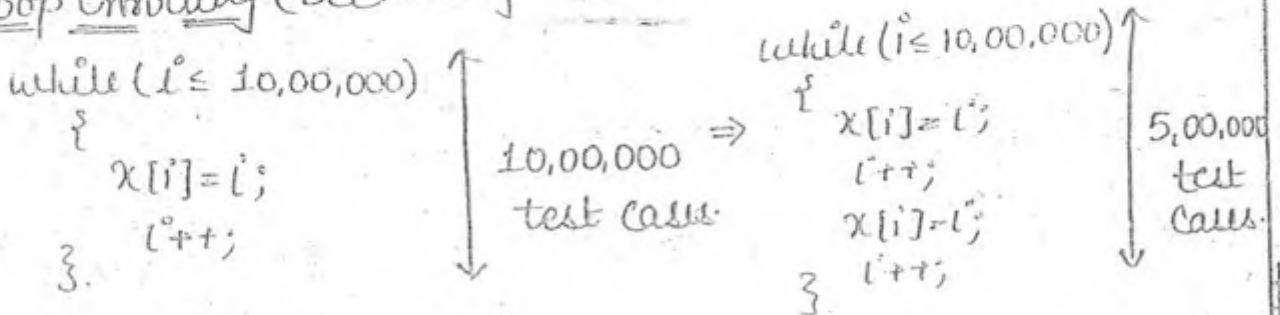 Loop Unrolling (
while (i ≤ 10,00,000)
{
x[i]=i;
i++;
}.
10,00,000
test cases.
⇒
while (i ≤ 10,00,000)
{
x[i]=i;
i++;
x[i]=i;
i++;
}
5,00,000
test
cases.